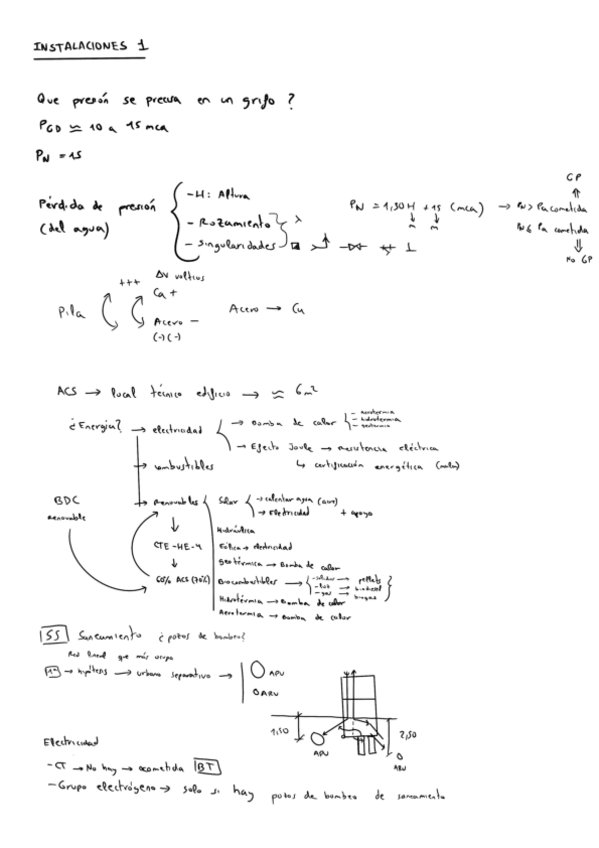 INSTALACIONES 1
Que presión se precisa en un grifo?
PGD ≃ 10 a 15 mca
PN = 15
Pérdida de presión (del agua)
- H: Altura
- Rozamiento
- Singularidades
λ
PN = 1,30 H + 15 (mca) → PN > Pacometida
m m
GP
PN ≤ Pa cometida
No GP
Pila
+++ ΔV voltios
Cu +
Acero -
(-)(-)
Acero → Cu
ACS → local técnico edificio → ≈ 6 m²
¿Energía? → electricidad
→ Bomba de calor
- aerotermia
- hidrotermia
- geotermia
→ Efecto Joule → resistencia eléctrica
↳ certificación energética (mala)
→ combustibles
→ renovables
Solar
→ calentar agua (ACS)
→ electricidad
+ apoyo
Hidráulica
Eólica → electricidad
Geotérmica → Bomba de calor
Biocombustibles
- sólidos → pellets
→ biodiesel
- gas → biogas
Hidrotérmia → Bomba de calor
Aerotermia → Bomba de calor
BDC
renovable
CTE-HE-4
60% ACS (70%)
SS Saneamiento ¿pozos de bombeo?
Red lineal que más ocupa
1º → hipótesis → urbano separativo →
APU
ARU
1,50
2,50
APU
ARU
Electricidad
- CT → No hay → acometida BT
- Grupo electrógeno → solo si hay pozos de bombeo de saneamiento